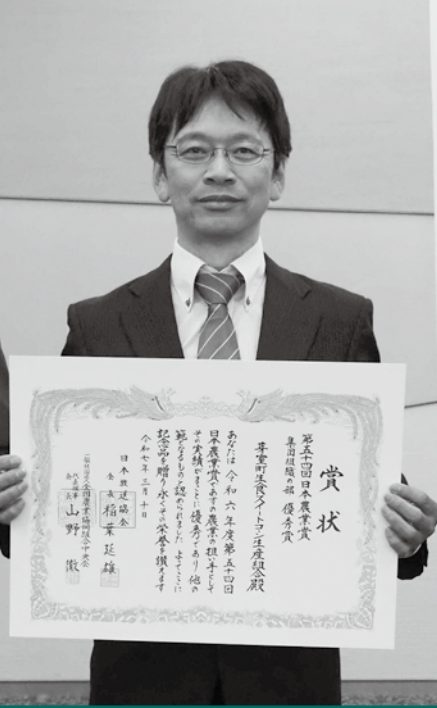 賞状
第五十四回日本農業賞
集団組織の部 優秀賞
芽室町生食スイートコーン生産組合殿
あなたは令和六年度第五十四回
日本農業賞であすの農業の担い手として
その実績がまことに優秀であり他の
範となるものと認められました よってここに
記念品を贈り永くその栄誉を讃えます
令和七年三月十日
日本放送協会
会長 稲葉延雄
一般社団法人全国農業協同組合中央会
代表理事
会長 山野徹